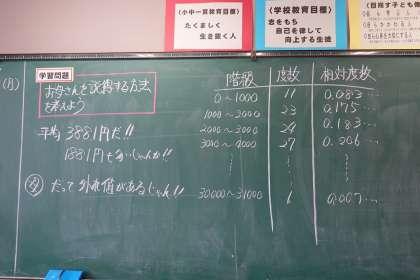 〈小中一貫教育目標〉
たくましく
生き抜く人
〈学校教育目標〉
志をもち
自己を律して
向上する生徒
(月)
学習問題
お母さんを説得する方法
を考えよう
平均 3881円だ!!
1881円も多いじゃんか!!
だって外れ値があるじゃん!!
階級 度数 相対度数
0〜1000 11 0.083…
1000〜2000 23 0.175…
2000〜3000 24 0.183…
3000〜4000 27 0.206…
30000〜31000 1 0.007…